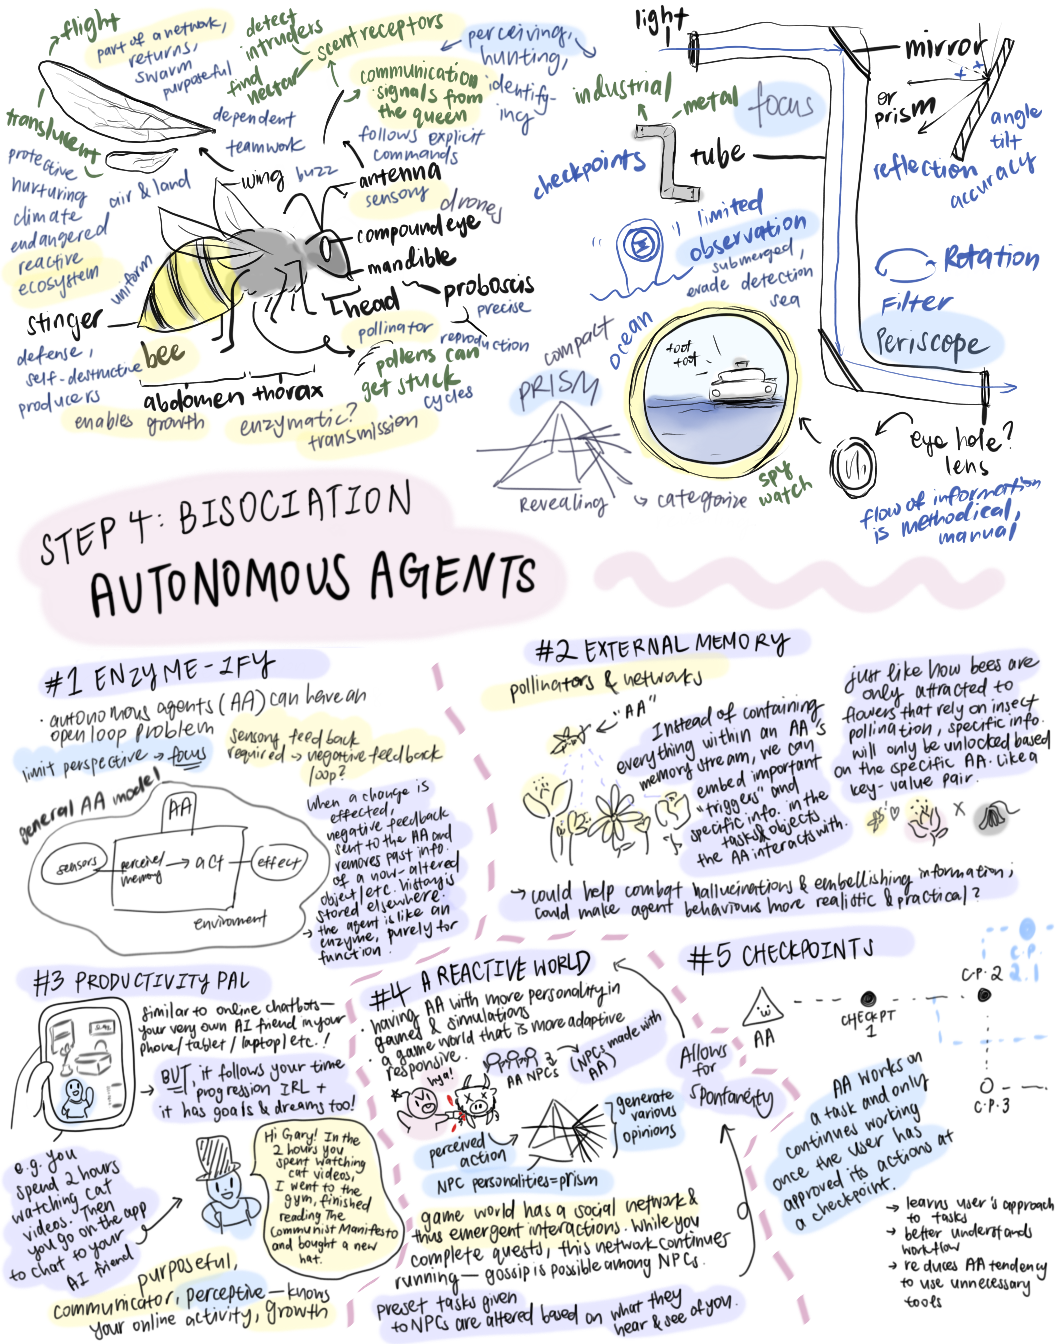 flight
part of a network,
returns,
swarm
purposeful
detect
intruders
find
nectar
scent receptors
communication
signals from
the queen
perceiving,
hunting,
identify-
ing
translucent
dependent
teamwork
follows explicit
commands
protective
nurturing
climate
endangered
reactive
ecosystem
air & land
wing
buzz
antenna
sensory
drones
compound eye
mandible
head
proboscis
precise
pollinator
reproduction
uniform
stinger
defense,
self-destructive
producers
bee
pollens can
get stuck
cycles
abdomen
thorax
enables growth
enzymatic?
transmission
light
mirror
or
prism
angle
tilt
accuracy
reflection
industrial
metal
focus
tube
checkpoints
"limited
observation"
submerged,
evade detection
sea
Rotation
Filter
Periscope
ocean
toot
toot
compact
PRISM
Revealing
categorize
spy
watch
eye hole?
lens
flow of information
is methodical,
manual
STEP 4: BISOCIATION
AUTONOMOUS AGENTS
#1 ENZYME-IFY
· autonomous agents (AA) can have an
open loop problem
limit perspective → focus
sensory feedback
required → negative feedback
loop?
general AA model
AA
sensors
perceived
memory
act
effect
enviroment
when a change is
effected,
negative feedback
sent to the AA and
removes past info.
of a now-altered
object/etc. History is
stored elsewhere.
→ the agent is like an
enzyme, purely for
function.
#2 EXTERNAL MEMORY
pollinators & networks
"AA"
Instead of containing
everything within an AA's
memory stream, we can
embed important
"triggers" and
specific info. in the
tasks & objects
the AA interacts with.
just like how bees are
only attracted to
flowers that rely on insect
pollination, specific info.
will only be unlocked based
on the specific AA. Like a
key-value pair.
x
→ could help combat hallucinations & embellishing information;
could make agent behaviours more realistic & practical?
#3 PRODUCTIVITY PAL
similar to online chatbots—
your very own AI friend in your
phone/tablet/laptop/etc.!
→ BUT, it follows your time
progression IRL +
it has goals & dreams too!
e.g. you
spend 2 hours
watching cat
videos. Then
you go on the app
to chat to your
AI friend
Hi Gary! In the
2 hours you
spent watching
cat videos,
I went to the
gym, finished
reading The
Communist Manifesto
and bought a new
hat.
purposeful,
communicator, perceptive—knows
your online activity, growth
#4 A REACTIVE WORLD
· having AA with more personality in
games & simulations
· a game world that is more adaptive
responsive.
AA NPCs
(NPCs made with
AA)
hya!
perceived
action
generate
various
opinions
NPC personalities=prism
game world has a social network &
thus emergent interactions. While you
complete quests, this network continues
running— gossip is possible among NPCs.
preset tasks given
to NPCs are altered based on what they
hear & see of you.
Allows
for
spontaneity
#5 CHECKPOINTS
AA
CHECKPT
1
C.P. 2
C.P.
2.1
C.P. 3
AA works on
a task and only
continues working
once the user has
approved its actions at
a checkpoint.
→ learns user's approach
to tasks
→ better understands
workflow
→ reduces AA tendency
to use unnecessary
tools